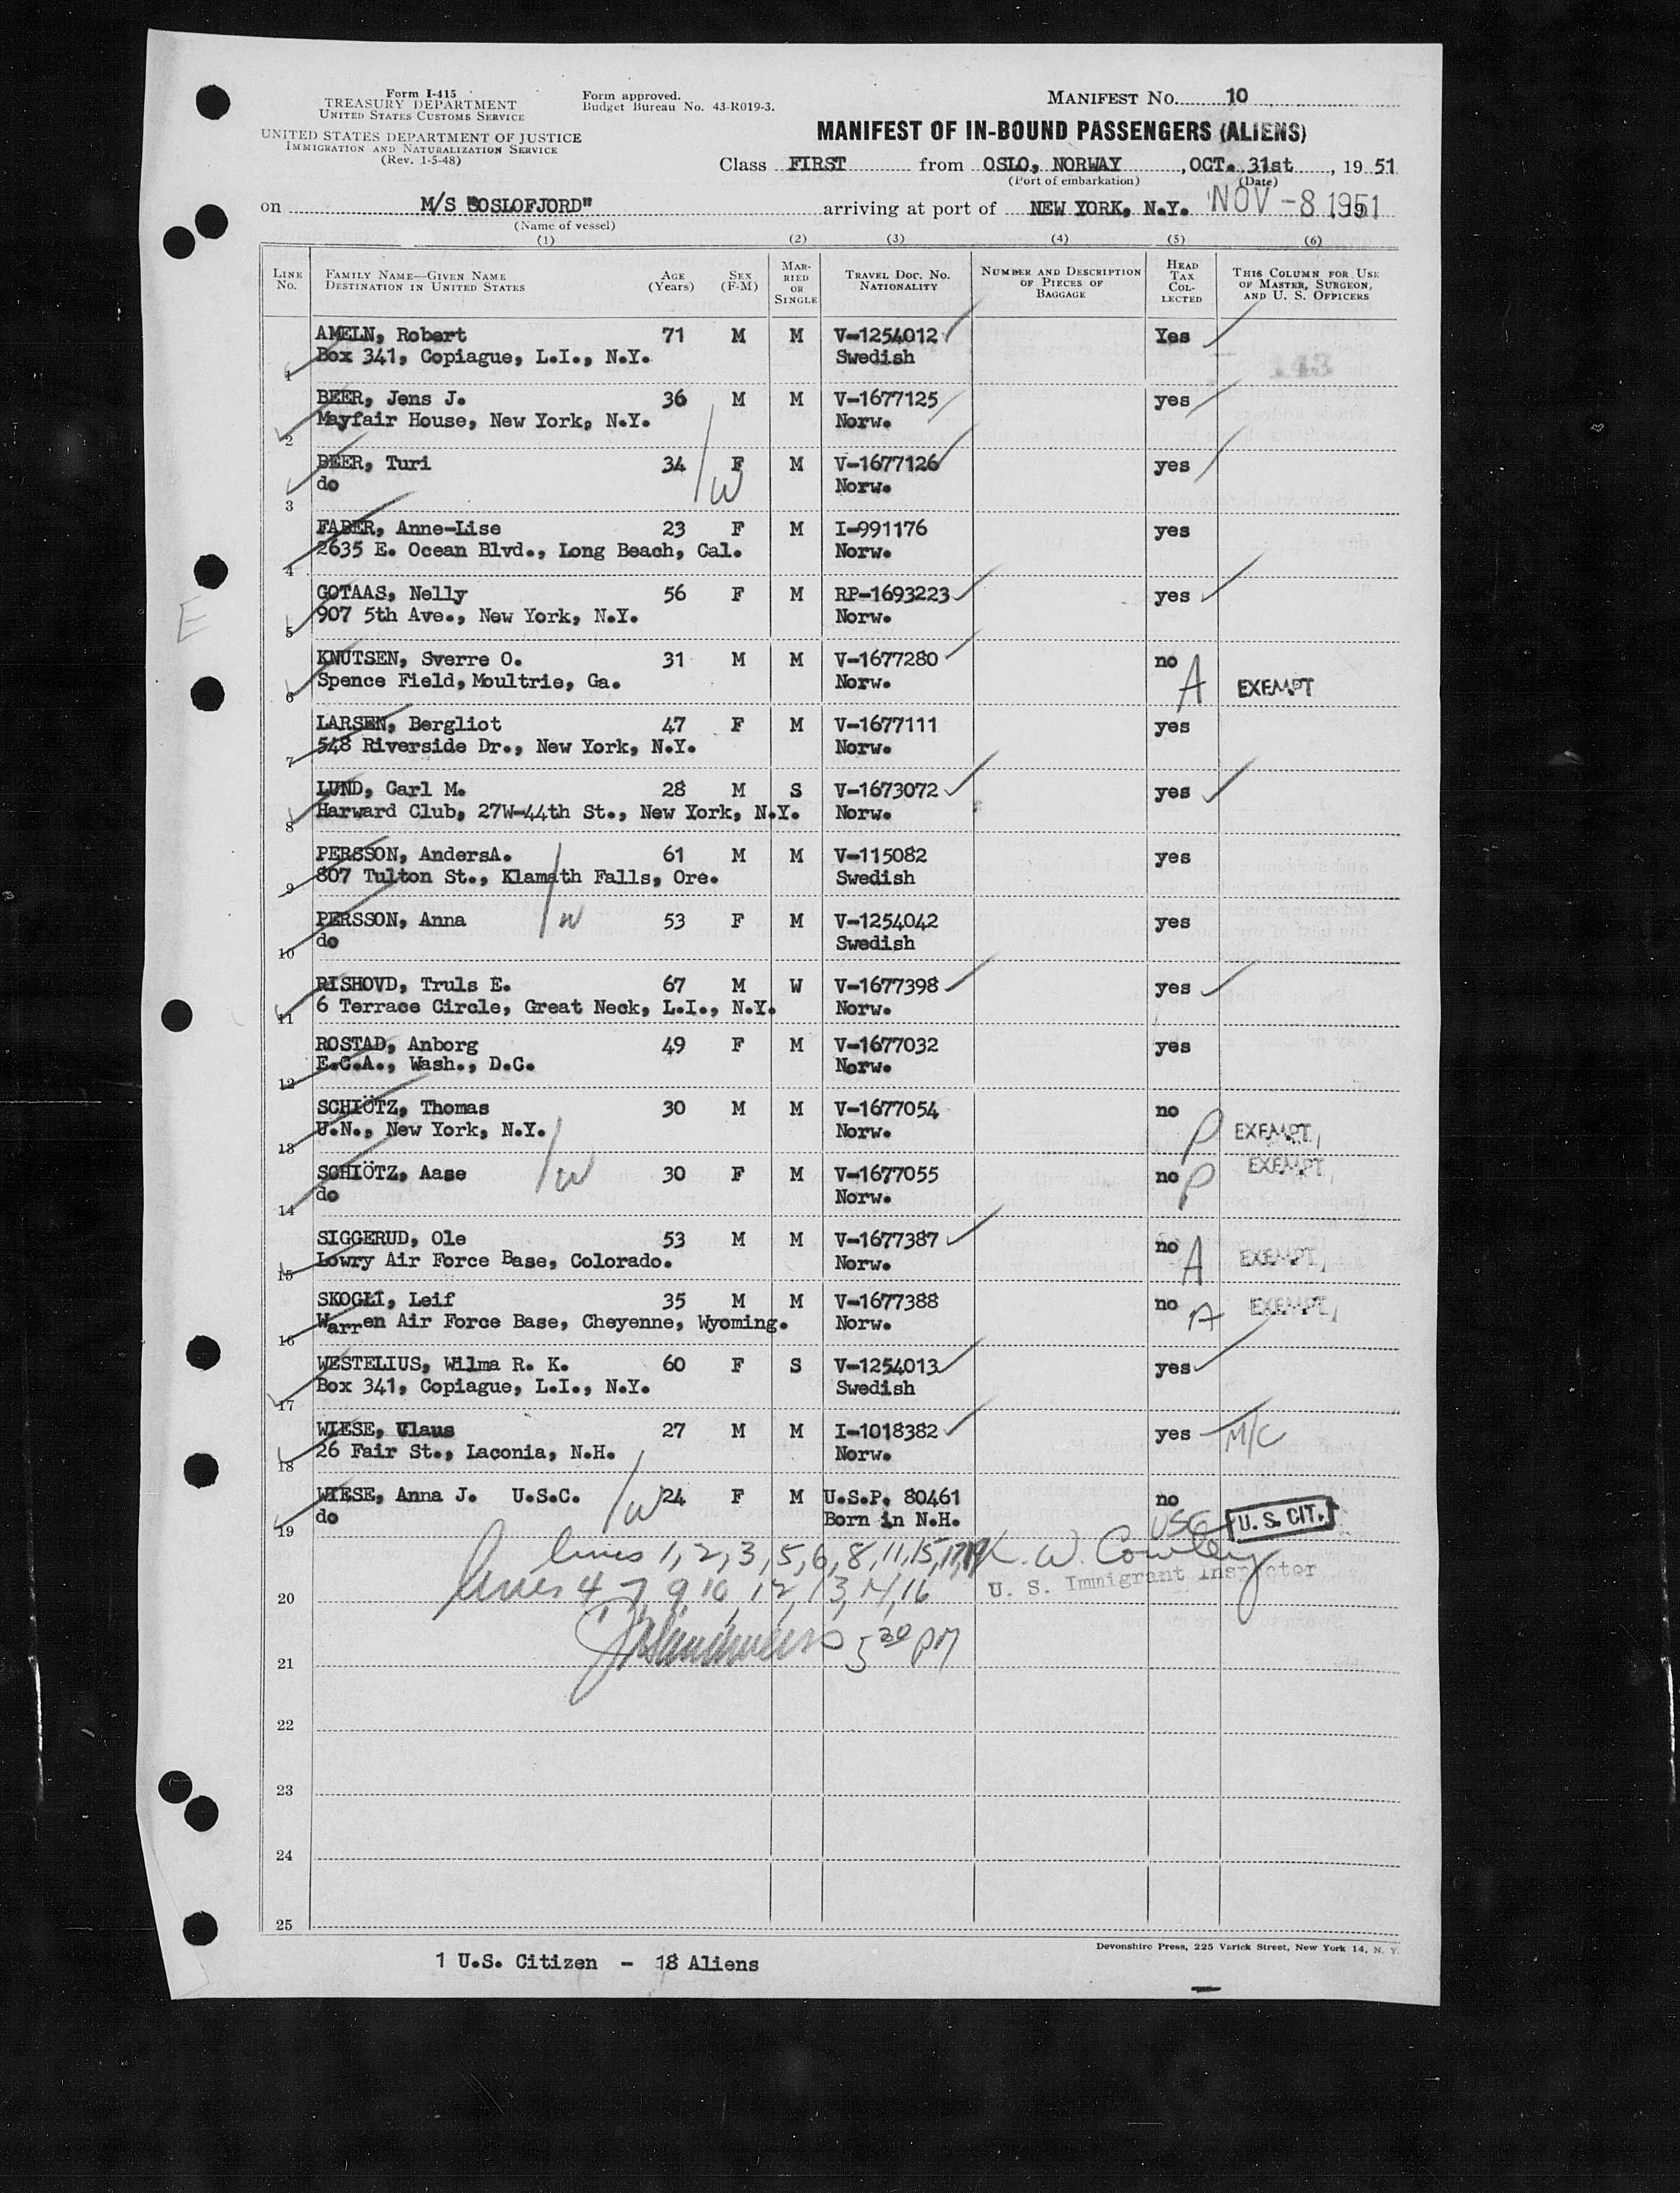 Form I-415
TREASURY DEPARTMENT
UNITED STATES CUSTOMS SERVICE
UNITED STATES DEPARTMENT OF JUSTICE
IMMIGRATION AND NATURALIZATION SERVICE
(Rev. 1-5-48)
Form approved.
Budget Bureau No. 43-R019-3.
MANIFEST NO. 10
MANIFEST OF IN-BOUND PASSENGERS (ALIENS)
Class FIRST from OSLO, NORWAY, OCT. 31st, 1951
(Port of embarkation) (Date)
on M/S "OSLOFJORD" arriving at port of NEW YORK, N.Y. NOV -8 1951 19
(Name of vessel)
(1) (2) (3) (4) (5) (6)
LINE NO. FAMILY NAME—GIVEN NAME DESTINATION IN UNITED STATES AGE (YEARS) SEX (F-M) MARRIED OR SINGLE TRAVEL DOC. NO. NATIONALITY NUMBER AND DESCRIPTION OF PIECES OF BAGGAGE HEAD TAX COLLECTED THIS COLUMN FOR USE OF MASTER, SURGEON, AND U. S. OFFICERS
AMELN, Robert 71 M M V-1254012 Yes
1 Box 341, Copiague, L.I., N.Y. Swedish
BEER, Jens J. 36 M M V-1677125 yes
2 Mayfair House, New York, N.Y. Norw.
BEER, Turi 34 F M V-1677126 yes
3 do W Norw.
FABER, Anne-Lise 23 F M I-991176 yes
4 2635 E. Ocean Blvd., Long Beach, Cal. Norw.
GOTAAS, Nelly 56 F M RP-1693223 yes
5 907 5th Ave., New York, N.Y. Norw.
KNUTSEN, Sverre O. 31 M M V-1677280 no
6 Spence Field, Moultrie, Ga. Norw. A EXEMPT
LARSEN, Bergliot 47 F M V-1677111 yes
7 548 Riverside Dr., New York, N.Y. Norw.
LUND, Carl M. 28 M S V-1673072 yes
8 Harward Club, 27W-44th St., New York, N.Y. Norw.
PERSSON, AndersA. 61 M M V-115082 yes
9 807 Tulton St., Klamath Falls, Ore. Swedish
PERSSON, Anna W 53 F M V-1254042 yes
10 do Swedish
RISHOVD, Truls E. 67 M W V-1677398 yes
11 6 Terrace Circle, Great Neck, L.I., N.Y. Norw.
ROSTAD, Anborg 49 F M V-1677032 yes
12 E.C.A., Wash., D.C. Norw.
SCHIÖTZ, Thomas 30 M M V-1677054 no
13 U.N., New York, N.Y. Norw. P EXEMPT
SCHIÖTZ, Aase W 30 F M V-1677055 no P EXEMPT
14 do Norw.
SIGGERUD, Ole 53 M M V-1677387 no
15 Lowry Air Force Base, Colorado. Norw. A EXEMPT
SKOGLI, Leif 35 M M V-1677388 no A EXEMPT
16 Warren Air Force Base, Cheyenne, Wyoming. Norw.
WESTELIUS, Wilma R. K. 60 F S V-1254013 yes
17 Box 341, Copiague, L.I., N.Y. Swedish
WIESE, Claus 27 M M I-1018382 yes M/C
18 26 Fair St., Laconia, N.H. Norw.
WIESE, Anna J. U.S.C. W 24 F M U.S.P. 80461 no
19 do Born in N.H. USC U. S. CIT.
lines 1, 2, 3, 5, 6, 8, 11, 15, 17, K. W. Cowley
U. S. Immigrant Inspector
20 lines 4 7 9 10, 12, 13, 14, 16
5 30 PM
21
22
23
24
25
Devonshire Press, 225 Varick Street, New York 14, N. Y.
1 U.S. Citizen - 18 Aliens
E